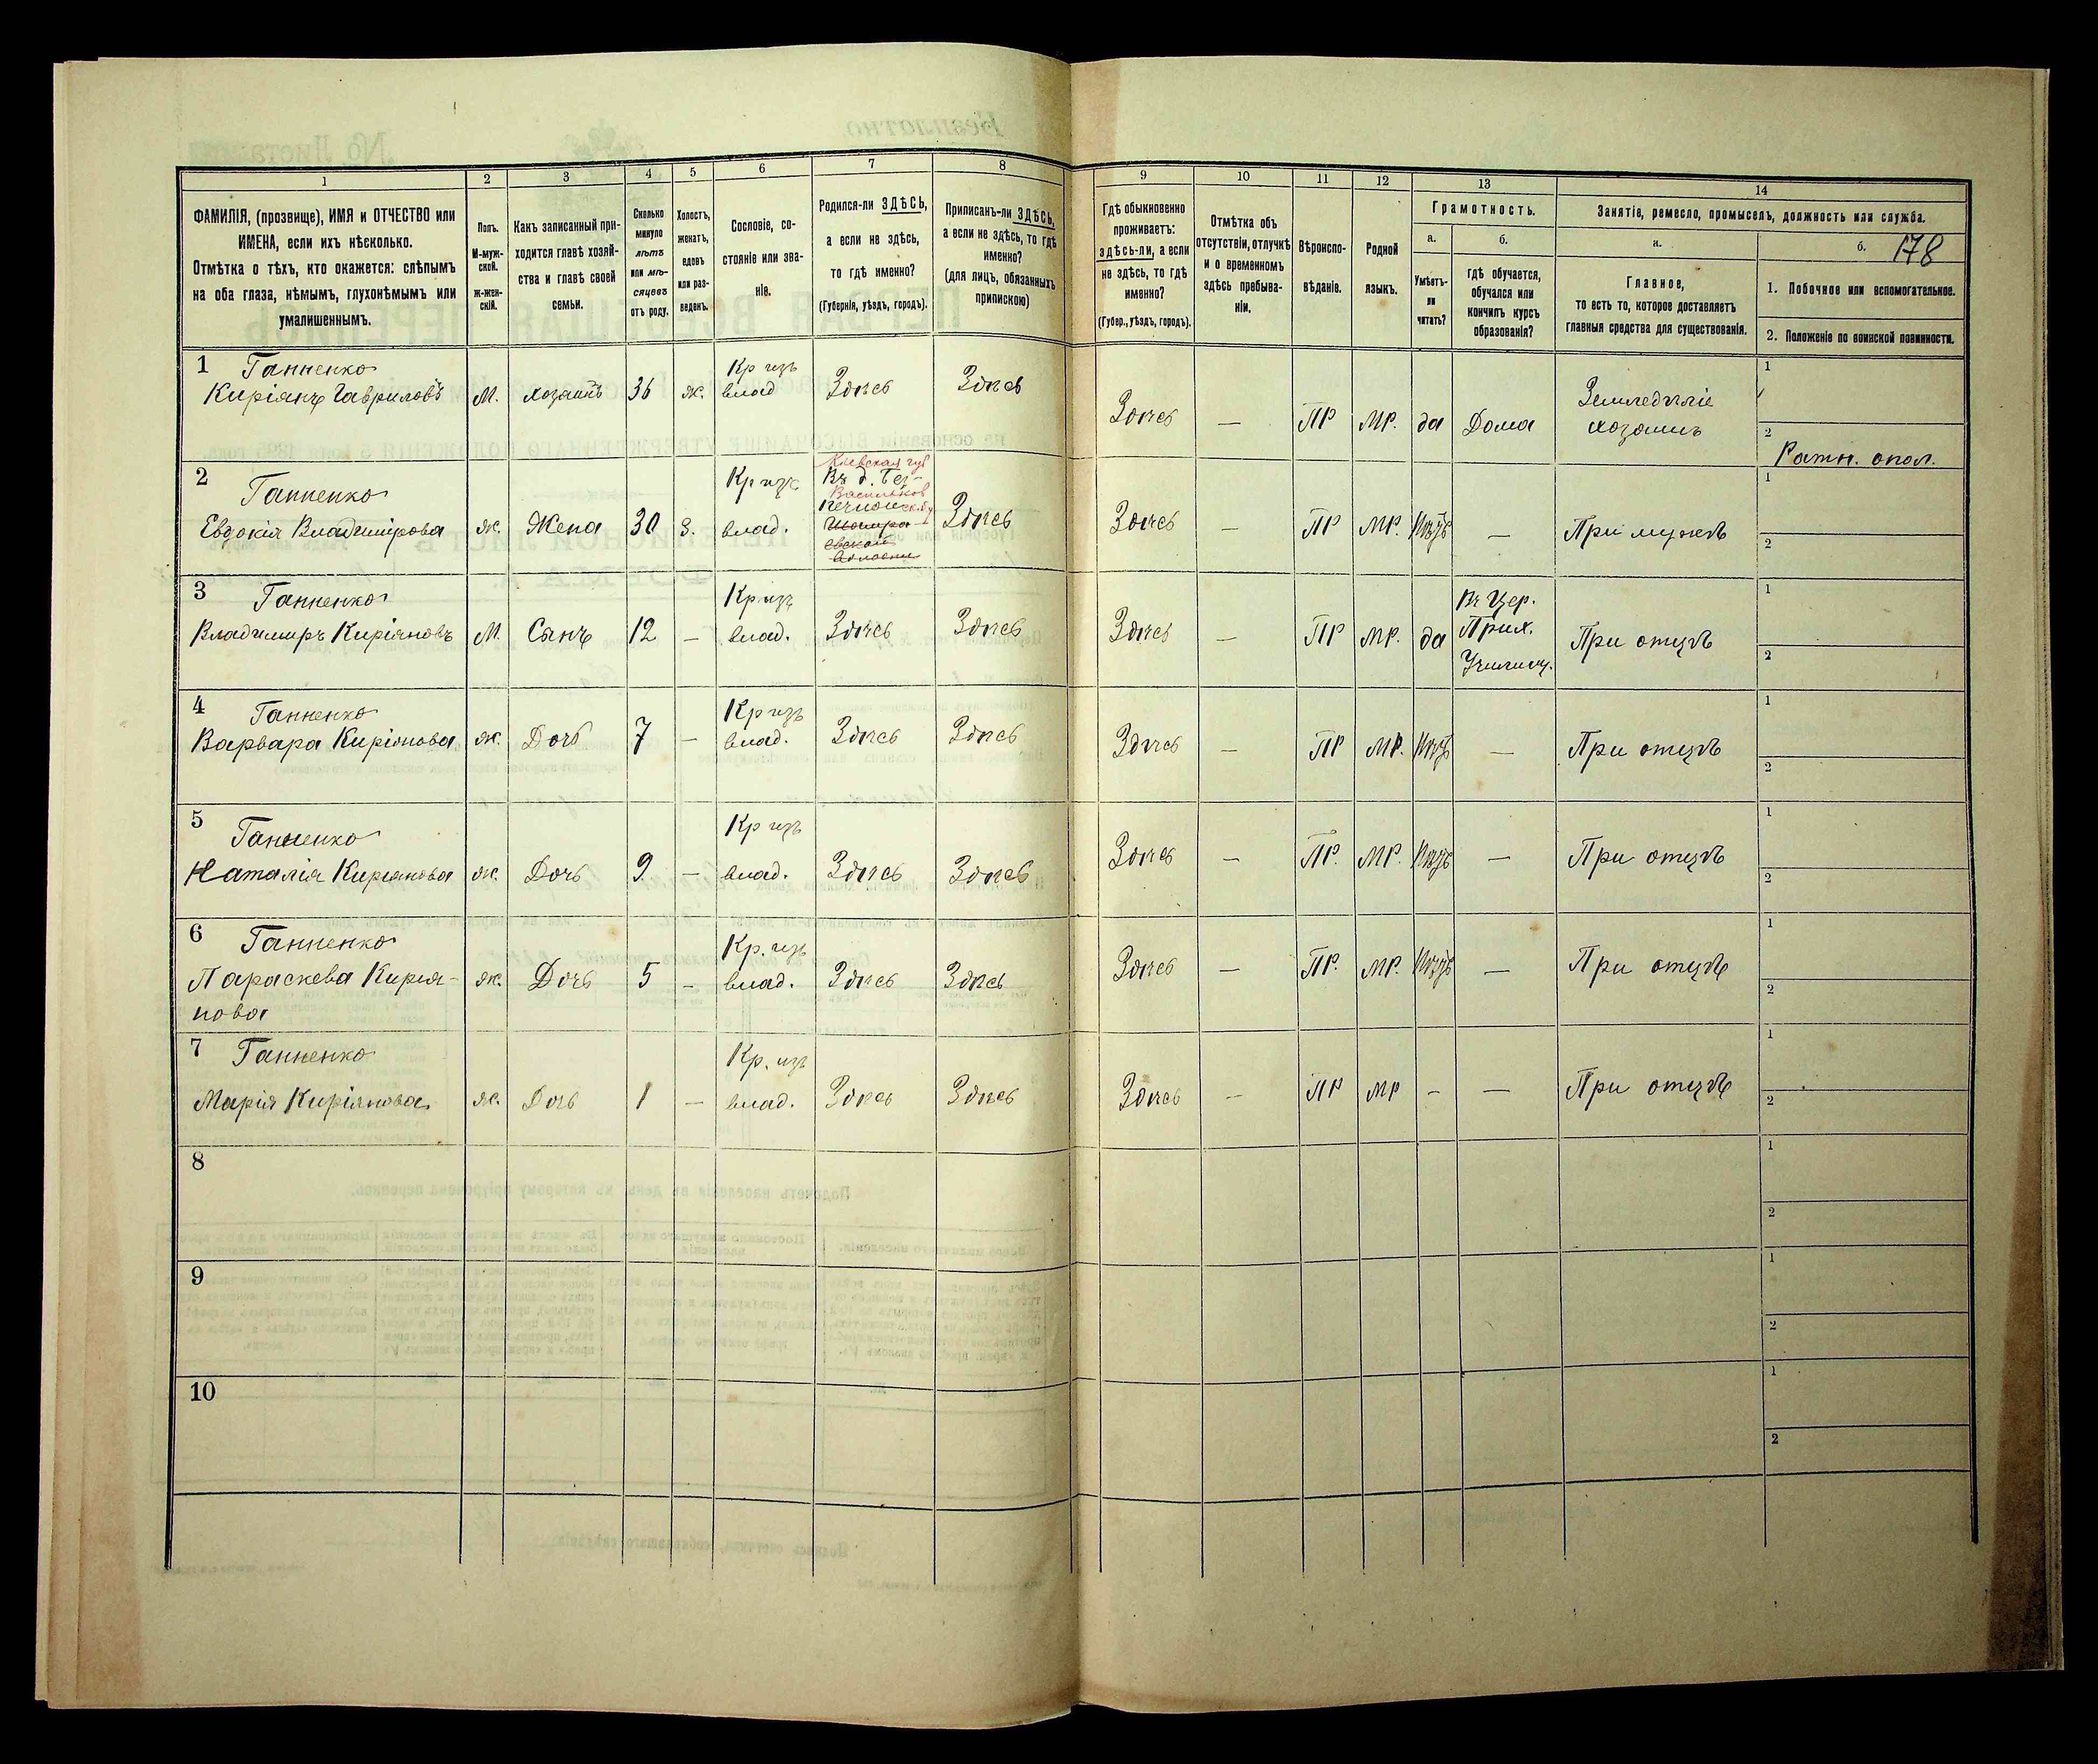 1 2 3 4 5 6 7 8 9 10 11 12 13 14
ФАМИЛІЯ, (прозвище), ИМЯ и ОТЧЕСТВО или
ИМЕНА, если ихъ нѣсколько.
Отмѣтка о тѣхъ, кто окажется: слѣпымъ
на оба глаза, нѣмымъ, глухонѣмымъ или
умалишеннымъ.
Полъ.
М-муж-
ской.
Ж-жен-
скій.
Какъ записанный при-
ходится главѣ хозяй-
ства и главѣ своей
семьи.
Сколько
минуло
лѣтъ
или мѣ-
сяцевъ
отъ роду.
Холостъ,
женатъ,
вдовъ
или раз-
веденъ.
Сословіе, со-
стояніе или зва-
ніе.
Родился-ли ЗДѢСЬ,
а если не здѣсь,
то гдѣ именно?
(Губернія, уѣздъ, городъ).
Приписанъ-ли ЗДѢСЬ,
а если не здѣсь, то гдѣ
именно?
(для лицъ, обязанныхъ
припискою)
Гдѣ обыкновенно
проживаетъ:
здѣсь-ли, а если
не здѣсь, то гдѣ
именно?
(Губер., уѣздъ, городъ).
Отмѣтка объ
отсутствіи, отлучкѣ
и о временномъ
здѣсь пребыва-
ніи.
Вѣроиспо-
вѣданіе.
Родной
языкъ.
Грамотность.
а.
Умѣетъ-
ли
читать?
б.
гдѣ обучается,
обучался или
кончилъ курсъ
образованія?
Занятіе, ремесло, промыселъ, должность или служба.
а.
Главное,
то есть то, которое доставляетъ
главныя средства для существованія.
б. 178
1. Побочное или вспомогательное.
2. Положеніе по воинской повинности.
1 Ганненко Кр изъ
Киріянъ Гавриловъ М. хозяинъ 36 ж. влад Здѣсь Здѣсь Здѣсь — ПР МР. да Дома
Земледѣліе
хозяинъ
1
2
Ратн. опол.
2 Ганненко Кр изъ
Евдокія Владимірова ж. Жена 30 З. влад.
Кіевская губ
Въ д. Без-
Васильков
Здѣсь Здѣсь — ПР МР. —
При мужѣ
1
2
3 Ганненко Кр изъ
Владимиръ Киріяновъ М. Сынъ 12 — влад. Здѣсь Здѣсь Здѣсь — ПР МР. да
Въ Цер.
Прих.
Училищ.
При отцѣ
1
2
4 Ганненко Кр изъ
Варвара Киріянова ж. Дочь 7 — влад. Здѣсь Здѣсь Здѣсь — ПР МР. — При отцѣ
1
2
5 Ганненко Кр изъ
Наталія Киріянова ж. Дочь 9 — влад. Здѣсь Здѣсь Здѣсь — ПР. МР. — При отцѣ
1
2
6 Ганненко Кр. изъ
Параскева Кирія-
нова ж. Дочь 5 — влад. Здѣсь Здѣсь Здѣсь — ПР. МР. — При отцѣ
1
2
7 Ганненко Кр. изъ
Марія Киріянова ж. Дочь 1 — влад. Здѣсь Здѣсь Здѣсь — ПР МР - — При отцѣ
1
2
8
1
2
9
1
2
10
1
2